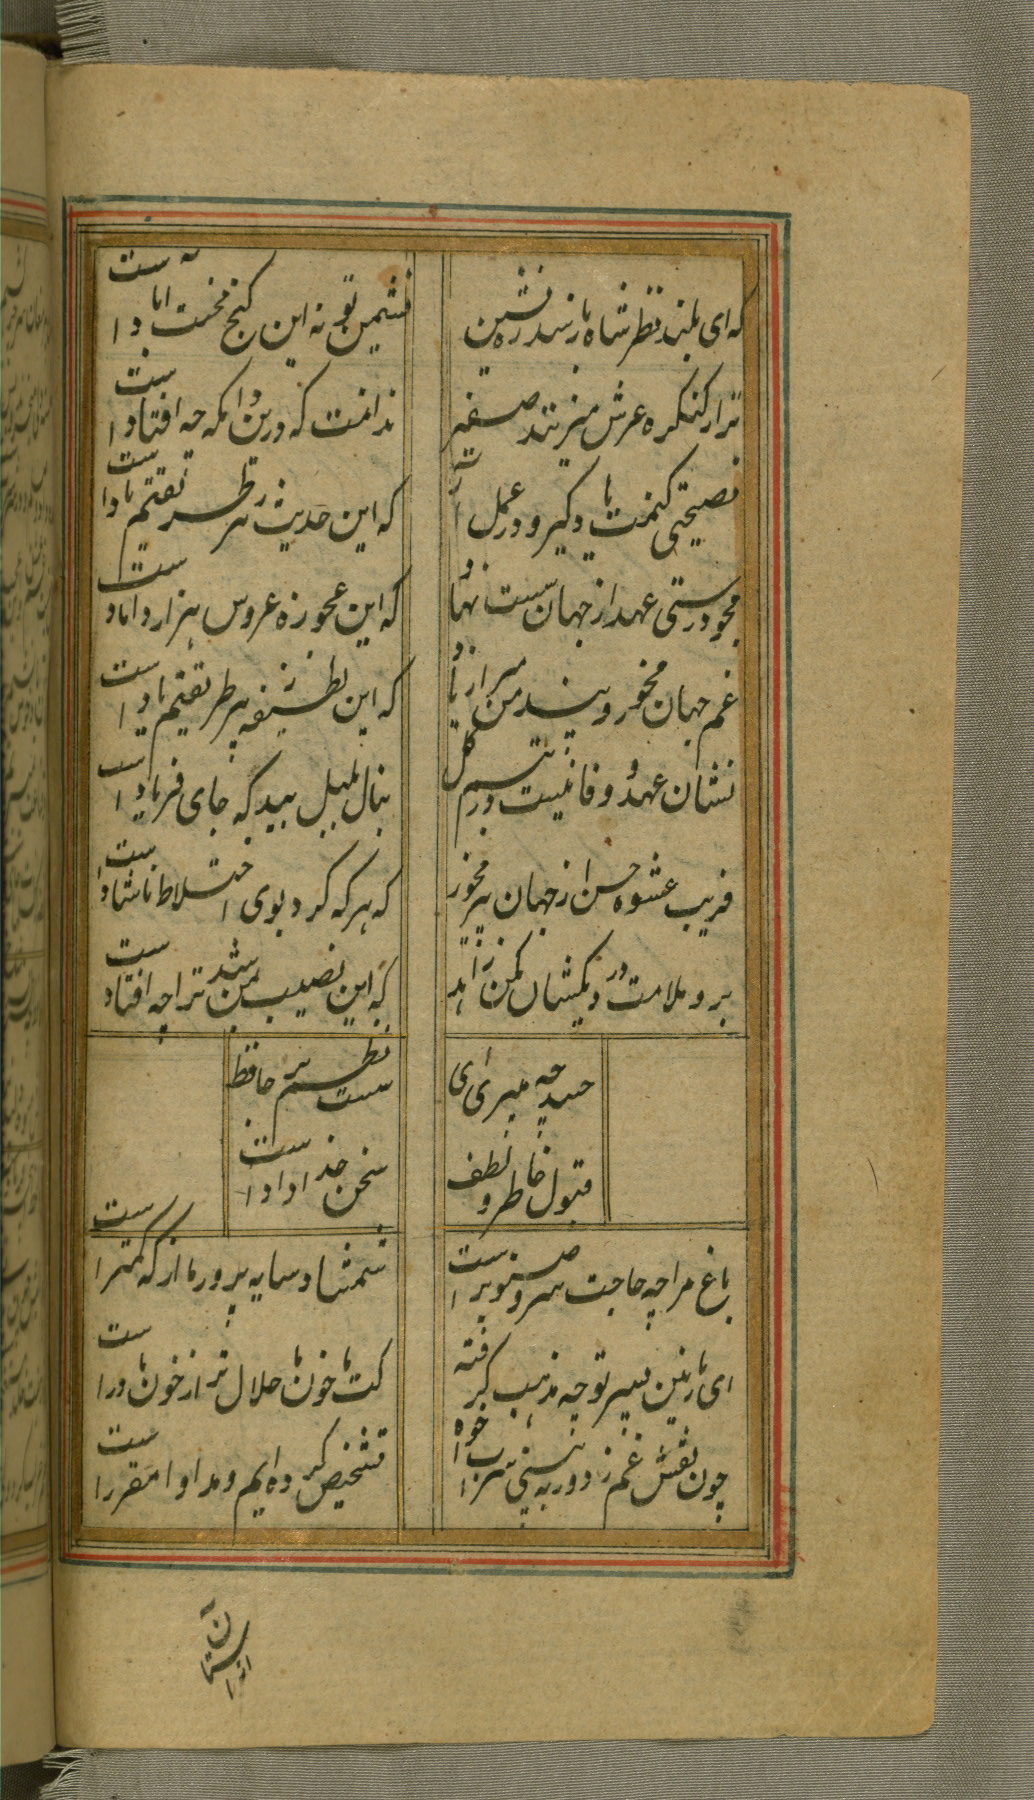 که ای بلند نظر شاه باز سدره نشین نشیمن تو نه این کنج محنت ابادست
ترا ز کنکره عرش میزنند صفیر ندانمت که درین دامکه چه افتادست
نصیحتی کنمت یاد کیر و در عمل آر که این حدیث ز پیر طریقتم یادست
مجو درستی عهد از جهان سست نهاد که این عجوزه عروس هزار دامادست
غم جهان مخور و پند من مبر از یاد که این لطیفه نغز ز پیر طریقتم یادست
نشان عهد و وفا نیست در تبسم کل بنال بلبل بیدل که جای فریادست
فریب عشوه حسن از جهان پیر مخور که هر که کرد بوی اختلاط ناشادست
برو ملامت دردیکشان مکن زاهد که این نصیب من شد ترا چه افتادست
حسد چه میبری ای سست نظم بر حافظ
قبول خاطر و لطف سخن خدادادست
باغ مرا چه حاجت سرو و صنوبرست شمشاد سایه پرور ما از که کمترست
ای نازنین پسر تو چه مذهب کرفته کت خون ما حلال تر از خون مادرست
چون نقش غم ز دور ببینی شراب خواه تشخیص کرده ایم و مداوا مقررست
از آستان